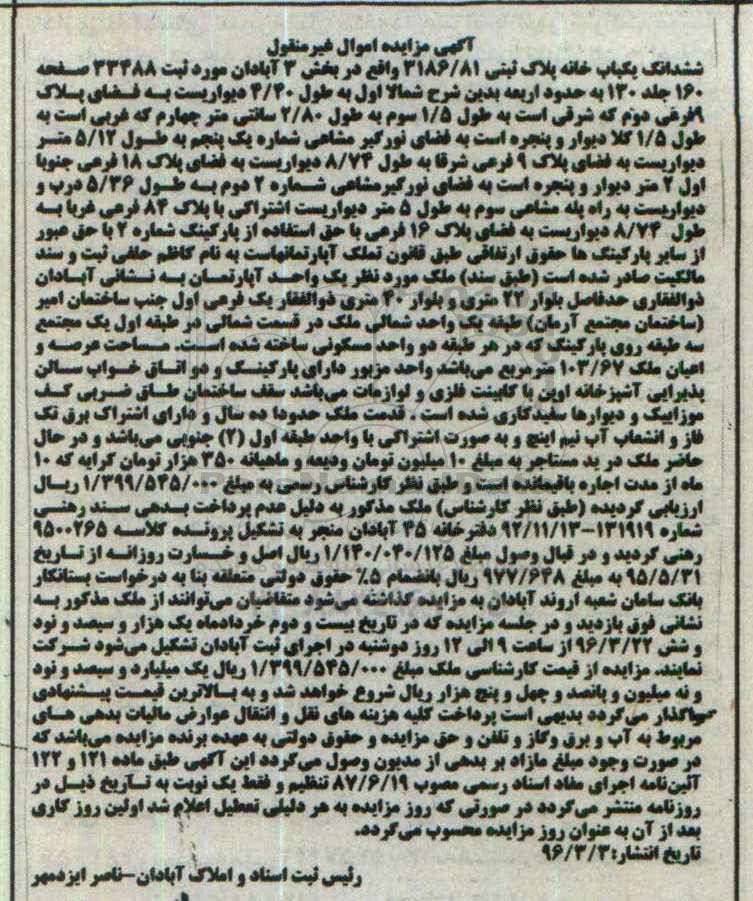 آگهی مزایده اموال غیرمنقول
ششدانگ یکباب خانه پلاک ثبتی ۳۱۸۶/۸۱ واقع در بخش ۳ آبادان مورد ثبت ۳۳۴۸۸ صفحه
۱۶۰ جلد ۱۳۰ به حدود اربعه بدین شرح شمالا اول به طول ۴/۴۰ دیواریست به فضای پلاک
۹فرعی دوم که شرقی است به طول ۱/۵ سوم به طول ۲/۸۰ سانتی متر چهارم که غربی است به
طول ۱/۵ کلا دیوار و پنجره است به فضای نورگیر مشاعی شماره یک پنجم به طول ۵/۱۲ متر
دیواریست به فضای پلاک ۹ فرعی شرقا به طول ۸/۷۴ دیواریست به فضای پلاک ۱۸ فرعی جنوبا
اول ۲ متر دیوار و پنجره است به فضای نورگیرمشاعی شماره ۲ دوم به طول ۵/۳۶ درب و
دیواریست به راه پله مشاعی سوم به طول ۵ متر دیواریست اشتراکی با پلاک ۸۴ فرعی غربا به
طول ۸/۷۴ دیواریست به فضای پلاک ۱۶ فرعی با حق استفاده از پارکینگ شماره ۲ با حق عبور
از سایر پارکینگ ها حقوق ارتفاقی طبق قانون تملک آپارتمانهاست به نام کاظم حلفی ثبت و سند
مالکیت صادر شده است (طبق سند) ملک مورد نظر یک واحد آپارتمان به نشانی آبادان
ذوالفقاری حدفاصل بلوار ۲۲ متری و بلوار ۴۰ متری ذوالفقار یک فرعی اول جنب ساختمان امیر
(ساختمان مجتمع آرمان) طبقه یک واحد شمالی ملک در قسمت شمالی در طبقه اول یک مجتمع
سه طبقه روی پارکینگ که در هر طبقه دو واحد مسکونی ساخته شده است. مساحت عرصه و
اعیان ملک ۱۰۳/۶۷ مترمربع می‌باشد واحد مزبور دارای پارکینگ و دو اتاق خواب سالن
پذیرایی آشپزخانه اوپن با کابینت فلزی و لوازمات می‌باشد سقف ساختمان طاق ضربی کف
موزاییک و دیوارها سفیدکاری شده است . قدمت ملک حدودا ده سال و دارای اشتراک برق تک
فاز و انشعاب آب نیم اینچ و به صورت اشتراکی با واحد طبقه اول (۲) جنوبی می‌باشد و در حال
حاضر ملک در ید مستاجر به مبلغ ۱۰ میلیون تومان ودیعه و ماهیانه ۳۵۰ هزار تومان کرایه که ۱۰
ماه از مدت اجاره باقیمانده است و طبق نظر کارشناس رسمی به مبلغ ۱/۳۹۹/۵۴۵/۰۰۰ ریال
ارزیابی گردیده (طبق نظر کارشناس) ملک مذکور به دلیل عدم پرداخت بدهی سند رهنی
شماره ۱۳۱۹۱۹-۹۲/۱۱/۱۳ دفترخانه ۴۵ آبادان منجر به تشکیل پرونده کلاسه ۹۵۰۰۲۶۵
رهنی گردید و در قبال وصول مبلغ ۱/۱۴۰/۰۴۰/۱۲۵ ریال اصل و خسارت روزانه از تاریخ
۹۵/۵/۳۱ به مبلغ ۹۷۷/۶۴۸ ریال بانضمام ۵٪ حقوق دولتی متعلقه بنا به درخواست بستانکار
بانک سامان شعبه اروند آبادان به مزایده گذاشته می‌شود متقاضیان می‌توانند از ملک مذکور به
نشانی فوق بازدید و در جلسه مزایده که در تاریخ بیست و دوم خردادماه یک هزار و سیصد و نود
و شش ۹۶/۳/۲۲ از ساعت ۹ الی ۱۲ روز دوشنبه در اجرای ثبت آبادان تشکیل می‌شود شرکت
نمایند. مزایده از قیمت کارشناسی ملک مبلغ ۱/۳۹۹/۵۴۵/۰۰۰ ریال یک میلیارد و سیصد و نود
و نه میلیون و پانصد و چهل و پنج هزار ریال شروع خواهد شد و به بالاترین قیمت پیشنهادی
واگذار می‌گردد بدیهی است پرداخت کلیه هزینه های نقل و انتقال عوارض مالیات بدهی های
مربوط به آب و برق وگاز و تلفن و حق مزایده و حقوق دولتی به عهده برنده مزایده می‌باشد که
در صورت وجود مبلغ مازاد بر بدهی از مدیون وصول می‌گردد این آگهی طبق ماده ۱۲۱ و ۱۲۲
آئین‌نامه اجرای مفاد اسناد رسمی مصوب ۸۷/۶/۱۹ تنظیم و فقط یک نوبت به تاریخ ذیل در
روزنامه منتشر می‌گردد در صورتی که روز مزایده به هر دلیلی تعطیل اعلام شد اولین روز کاری
بعد از آن به عنوان روز مزایده محسوب می‌گردد.
تاریخ انتشار:۹۶/۳/۳
رئیس ثبت اسناد و املاک آبادان-ناصر ایزدمهر